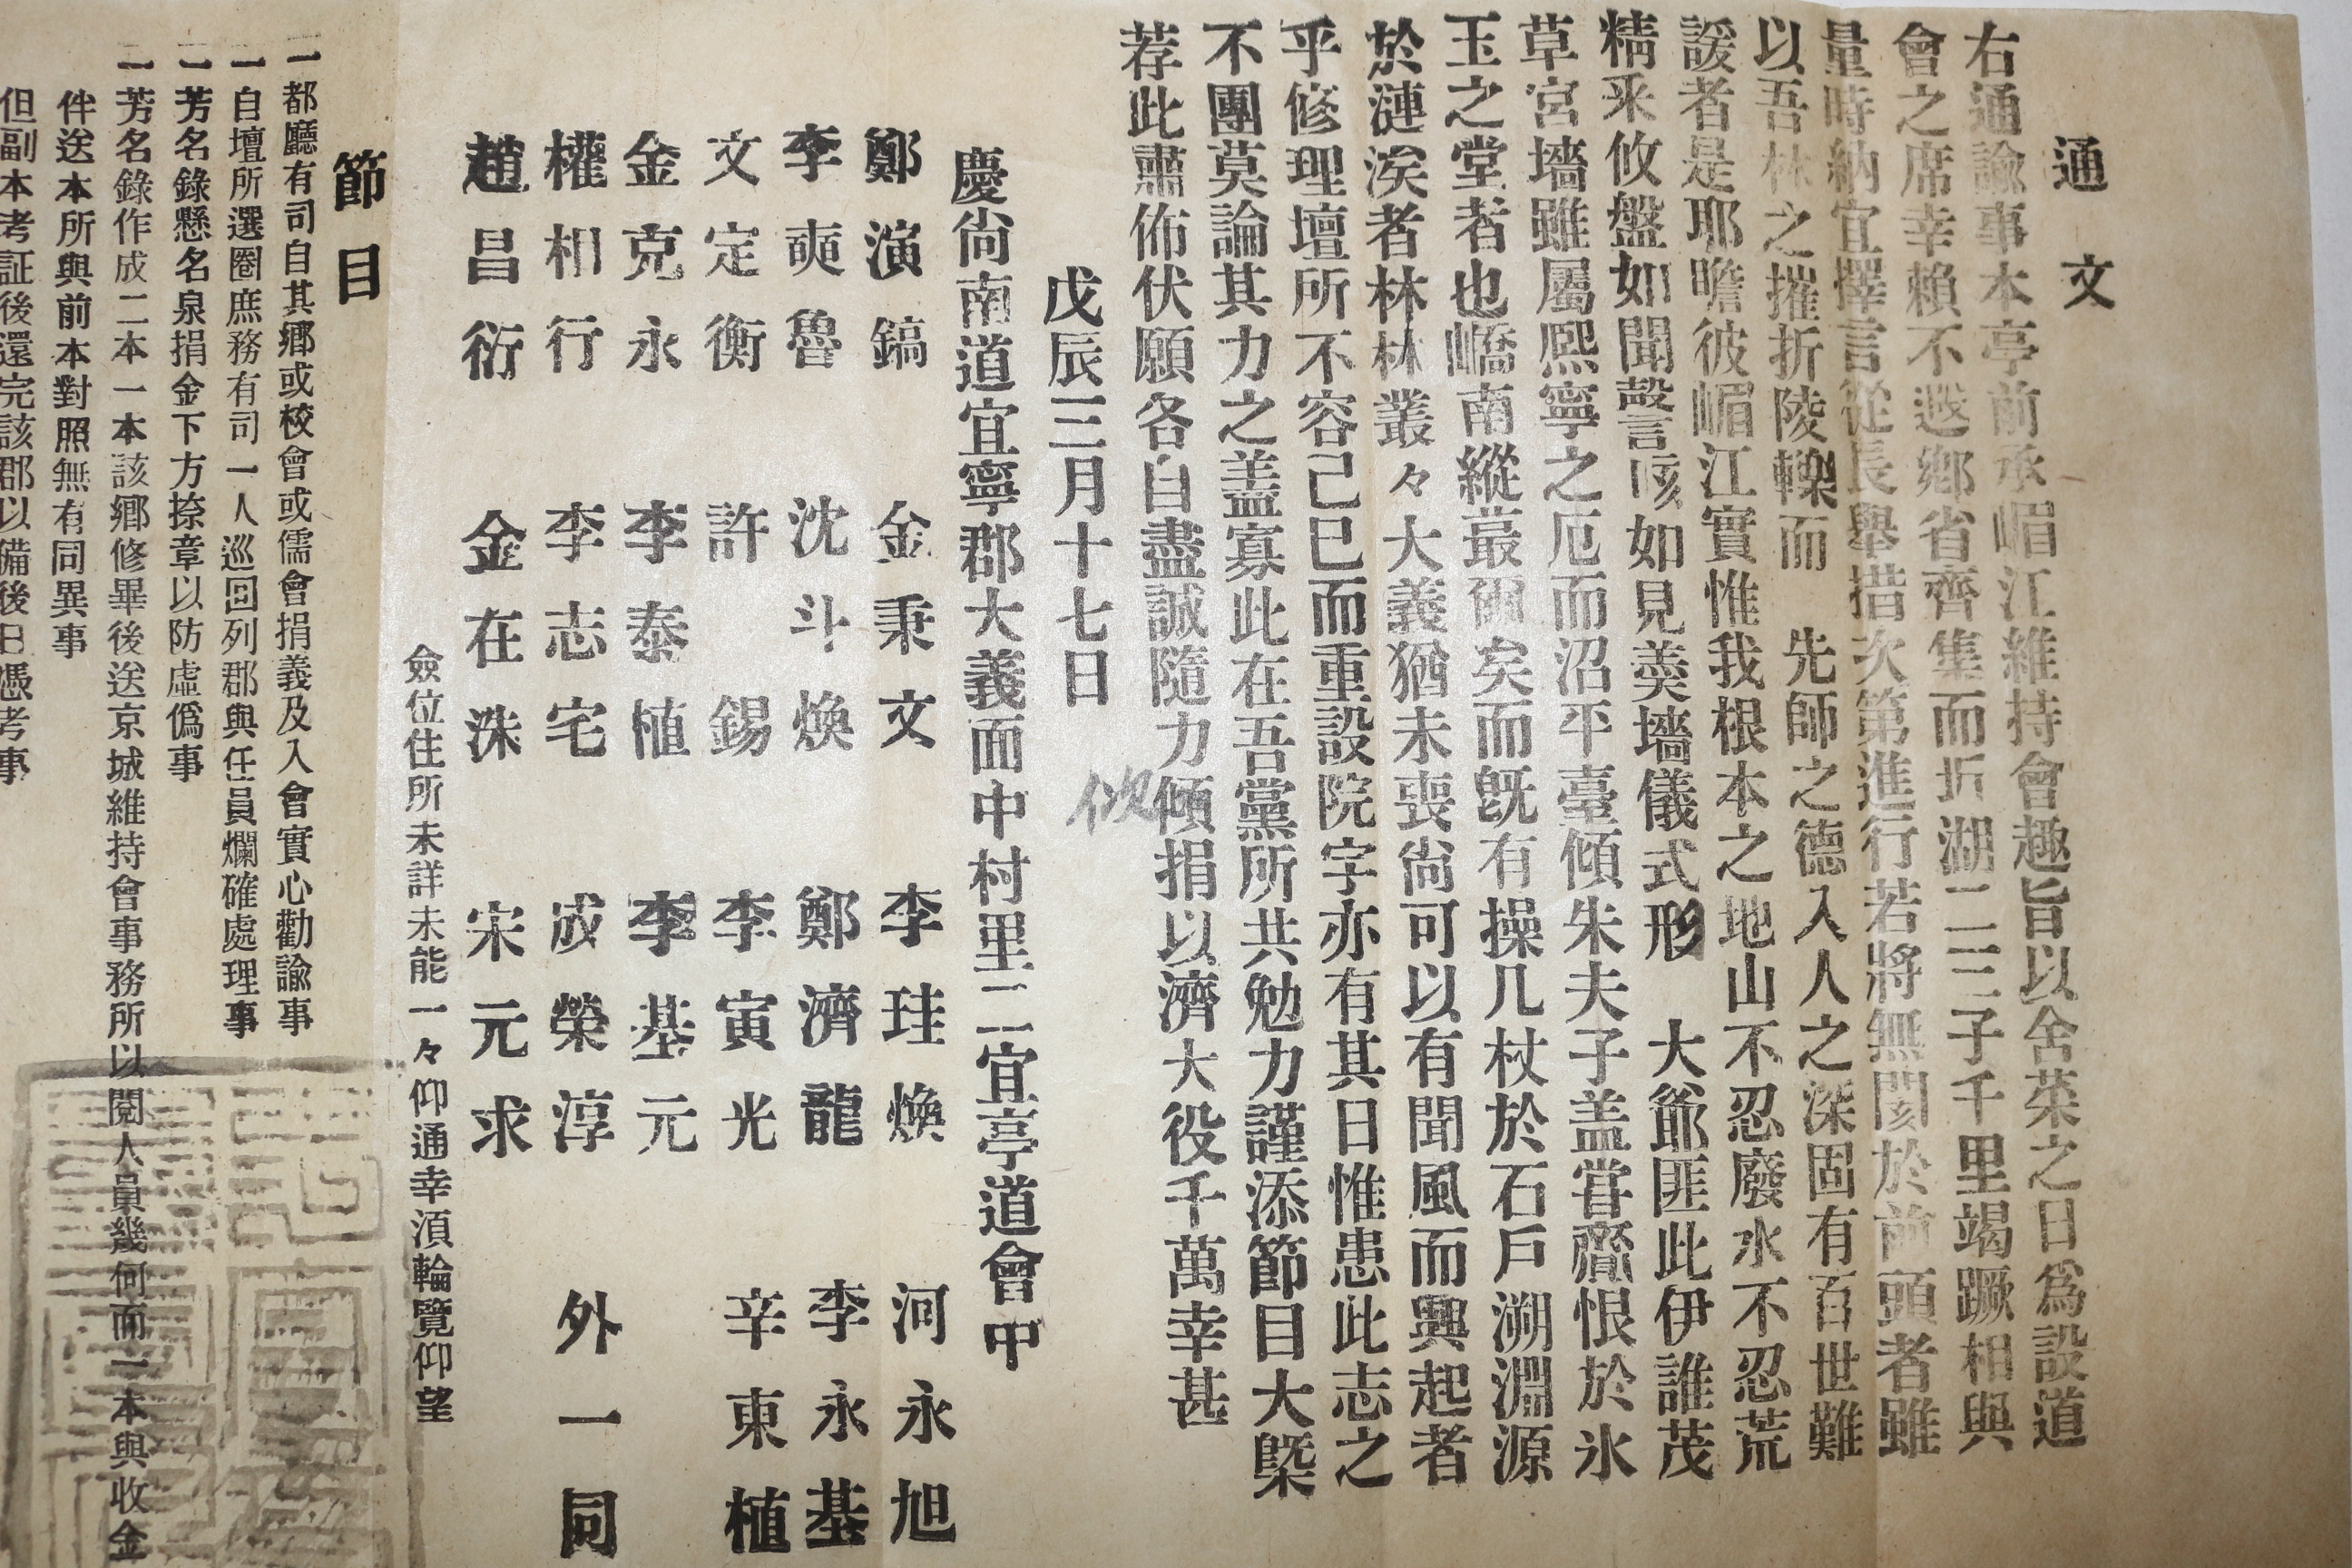 通文
右通諭事本亭前承嵋江維持會趣旨以舍菜之日爲設道
會之席幸賴不遐鄕省齊集而折湖二三子千里竭蹶相與
量時納宜擇言從長擧措次第進行若將無閡於前頭者雖
以吾林之摧折陵轢而 先師之德入人之深固有百世難
諼者是耶瞻彼嵋江實惟我根本之地山不忍廢水不忍荒
精釆攸盤如聞謦咳如見羮墻儀式形 大爺匪此伊誰茂
草宮墻雖屬熙寧之厄而沼平臺傾朱夫子盖嘗齎恨於氷
玉之堂者也嶠南縱蕞爾矣而旣有操几杖於石戶溯淵源
於漣涘者林林叢々大義猶未喪尙可以有聞風而興起者
乎修理壇所不容己巳而重設院字亦有其日惟患此志之
不團莫論其力之盖寡此在吾黨所共勉力謹添節目大槩
荐此肅佈伏願各自盡誠隨力傾捐以濟大役千萬幸甚
戊辰三月十七日
慶尙南道宜寧郡大義面中村里二宜亭道會中
鄭演鎬 金秉文 李珪煥 河永旭
李奭魯 沈斗煥 鄭濟龍 李永基
文定衡 許錫 李寅光 辛東植
金克永 李泰植 李基元
權相行 李志宅 成榮淳 外一同
趙昌衍 金在洙 宋元求
僉位住所未詳未能一々仰通幸須輪覽仰望
節目
一都廳有司自其鄕或校會或儒會捐義及入會實心勸諭事
一自壇所選圈庶務有司一人巡回列郡與任員爛確處理事
一芳名錄懸名泉捐金下方捺章以防虛僞事
一芳名錄作成二本一本該鄕修畢後送京城維持會事務所以閱人員幾何而一本與收金
伴送本所與前本對照無有同異事
但副本考証後還完該郡以備後日憑考事